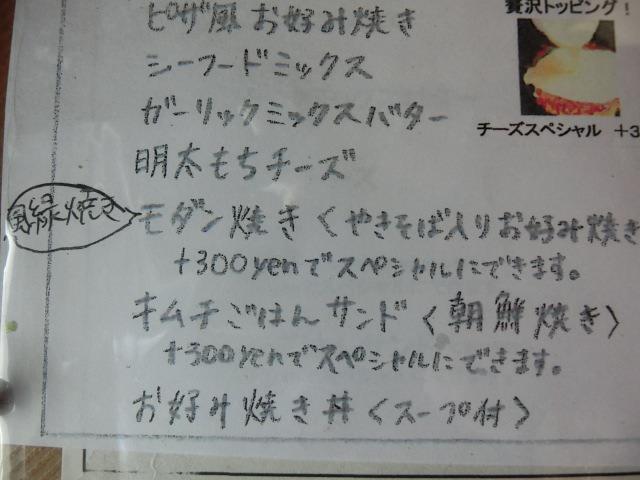 ピザ風お好み焼き
贅沢トッピング！
シーフードミックス
ガーリックミックスバター
チーズスペシャル +3
明太もちチーズ
縁焼き
モダン焼き〈やきそば入りお好み焼き
+300yenでスペシャルにできます。
キムチごはんサンド〈朝鮮焼き〉
+300yenでスペシャルにできます。
お好み焼き丼〈スープ付〉